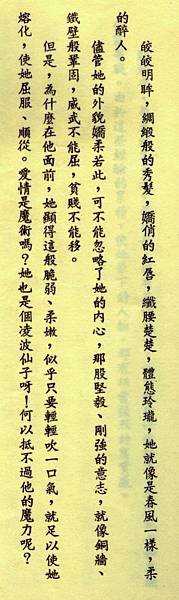 皎皎明眸，綢緞般的秀髮，嬌俏的紅唇，纖腰楚楚，體態玲瓏，她就像是春風一樣，柔
的醉人。
儘管她的外貌嬌柔若此，可不能忽略了她的內心，那股堅毅、剛強的意志，就像銅牆、
鐵壁般鞏固，威武不能屈，貧賤不能移。
但是，為什麼在他面前，她顯得這般脆弱、柔嫩，似乎只要輕輕吹一口氣，就足以使她
熔化，使她屈服、順從。愛情是魔術嗎？她也是個凌波仙子呀！何以抵不過他的魔力呢？